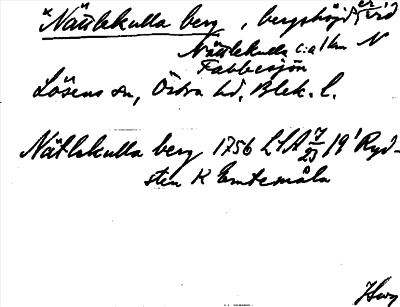 *Nättlekulla berg, bergshöjder vid
Nättlekulla c:a 1 km N
Fabbesjön
Lösens sn, Östra hd, Blek. l.
Nätlekulla berg 1756 LSA 7/23 19¹ Ryd-
sten K Emtemåla